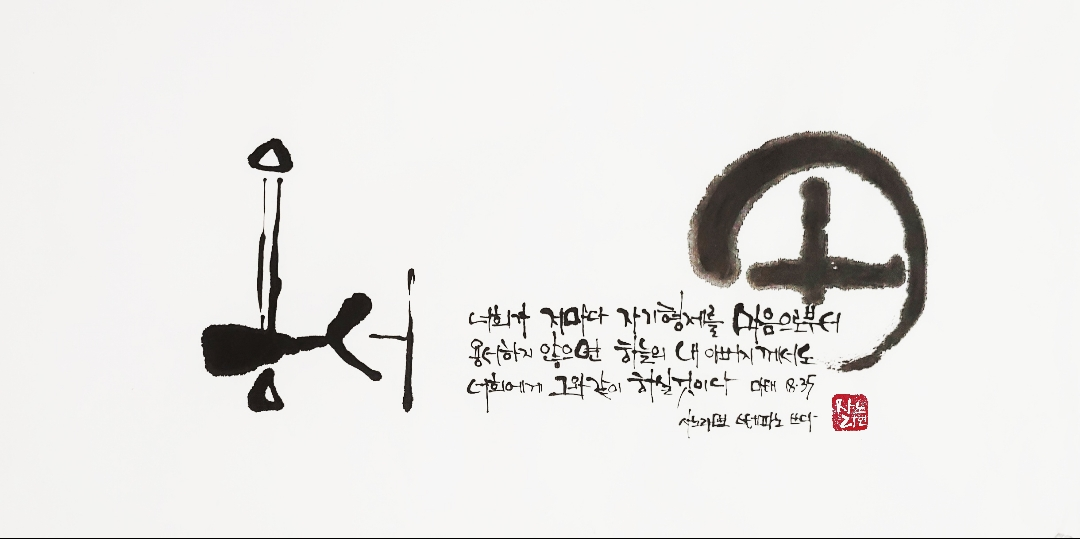 용서
너희가 저마다 자기 형제를 마음으로부터
용서하지 않으면 하늘의 내 아버지께서도
너희에게 그와 같이 하실 것이다 마태 18.35
스테파노 쓰다